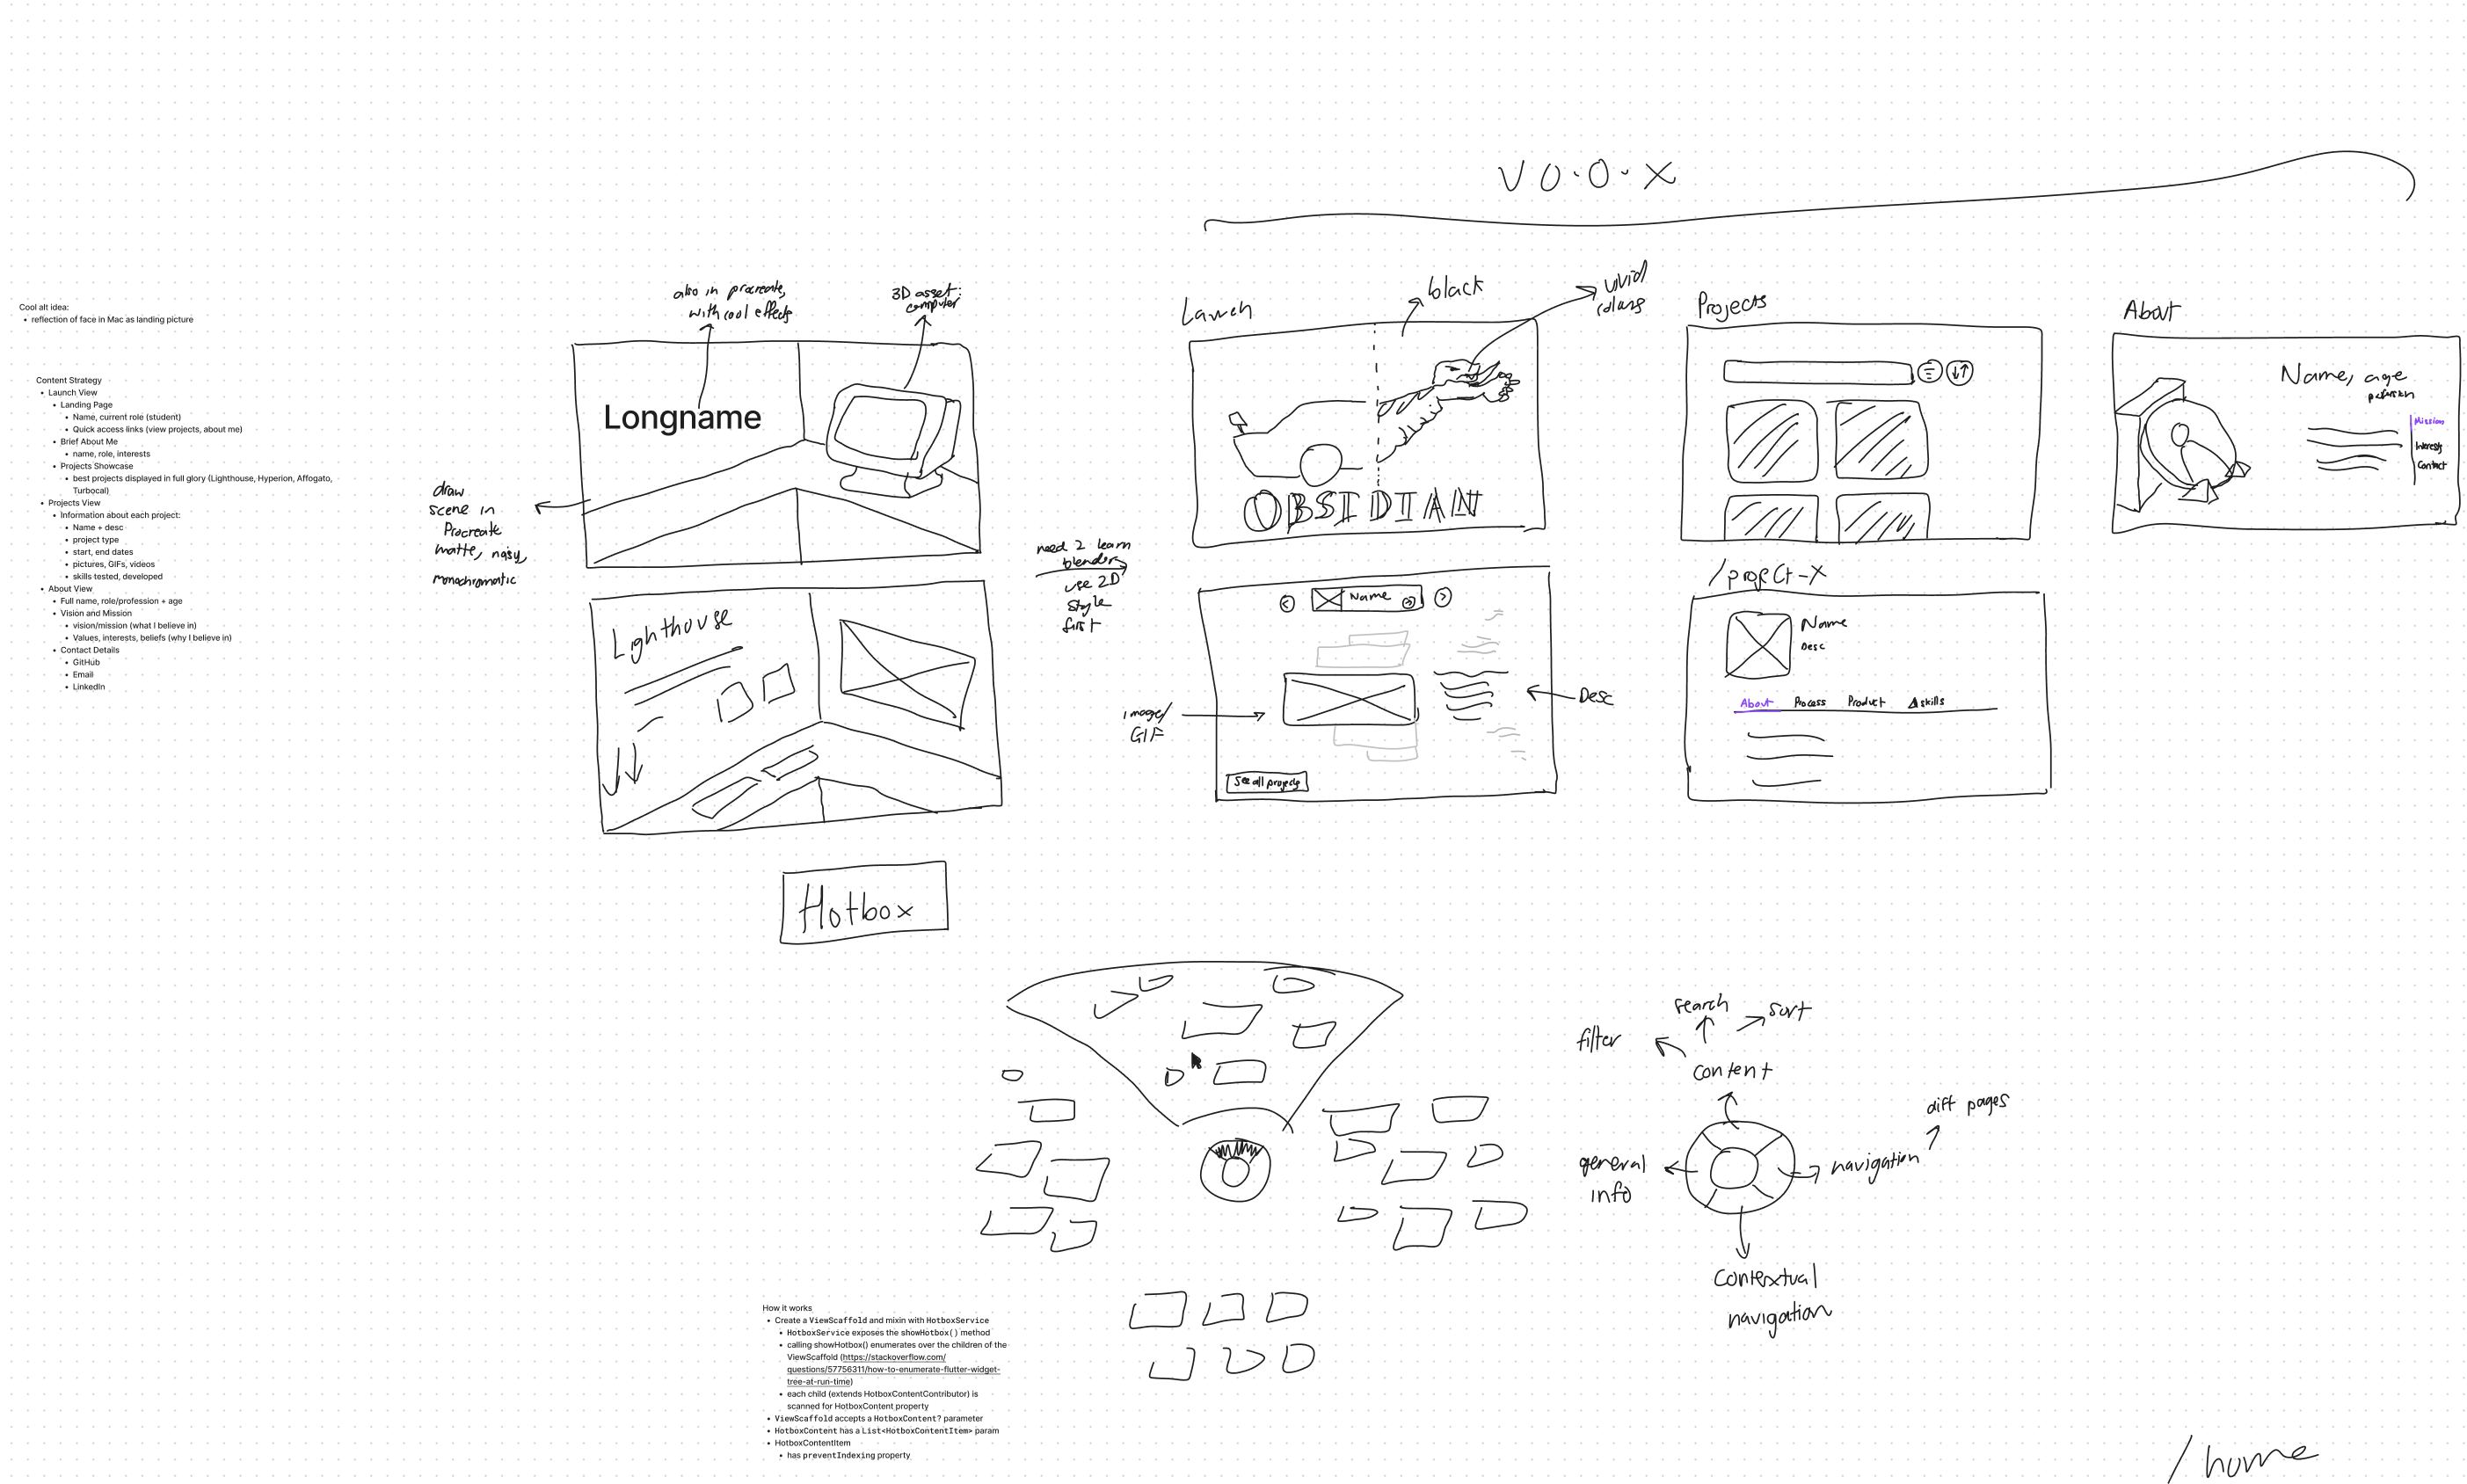 V 0.0.X
Cool alt idea:
• reflection of face in Mac as landing picture
Content Strategy
• Launch View
• Landing Page
• Name, current role (student)
• Quick access links (view projects, about me)
• Brief About Me
• name, role, interests
• Projects Showcase
• best projects displayed in full glory (Lighthouse, Hyperion, Affogato,
Turbocal)
• Projects View
• Information about each project:
• Name + desc
• project type
• start, end dates
• pictures, GIFs, videos
• skills tested, developed
• About View
• Full name, role/profession + age
• Vision and Mission
• vision/mission (what I believe in)
• Values, interests, beliefs (why I believe in)
• Contact Details
• GitHub
• Email
• LinkedIn
also in procreate,
with cool effects
3D asset:
computer
Longname
draw
scene in
Procreate
matte, noisy,
monochromatic
Lighthouse
need 2 learn
blender
use 2D
style
first
Launch
black
vivid
OBSIDIAN
Name
image/
GIF
Desc
See all projects
Projects
/project-X
Name
Desc
About Process Product Δ skills
About
Name, age
Mission
Interests
Contact
Hotbox
filter
search
sort
content
general
info
navigation
diff pages
Contextual
navigation
How it works
• Create a ViewScaffold and mixin with HotboxService
• HotboxService exposes the showHotbox() method
• calling showHotbox() enumerates over the children of the
ViewScaffold (https://stackoverflow.com/
questions/57756311/how-to-enumerate-flutter-widget-
tree-at-run-time)
• each child (extends HotboxContentContributor) is
scanned for HotboxContent property
• ViewScaffold accepts a HotboxContent? parameter
• HotboxContent has a List<HotboxContentItem> param
• HotboxContentItem
• has preventIndexing property
/home